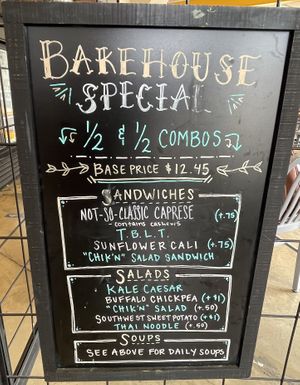 BAKEHOUSE
SPECIAL
1/2 & 1/2 COMBOS
BASE PRICE $12.45
SANDWICHES
NOT-SO-CLASSIC CAPRESE (+.75)
contains cashews
T.B.L.T.
SUNFLOWER CALI (+.75)
"CHIK'N" SALAD SANDWICH
SALADS
KALE CAESAR
BUFFALO CHICKPEA (+$1)
"CHIK'N" SALAD (+.50)
SOUTHWEST SWEET POTATO (+$1)
THAI NOODLE (+.50)
SOUPS
SEE ABOVE FOR DAILY SOUPS